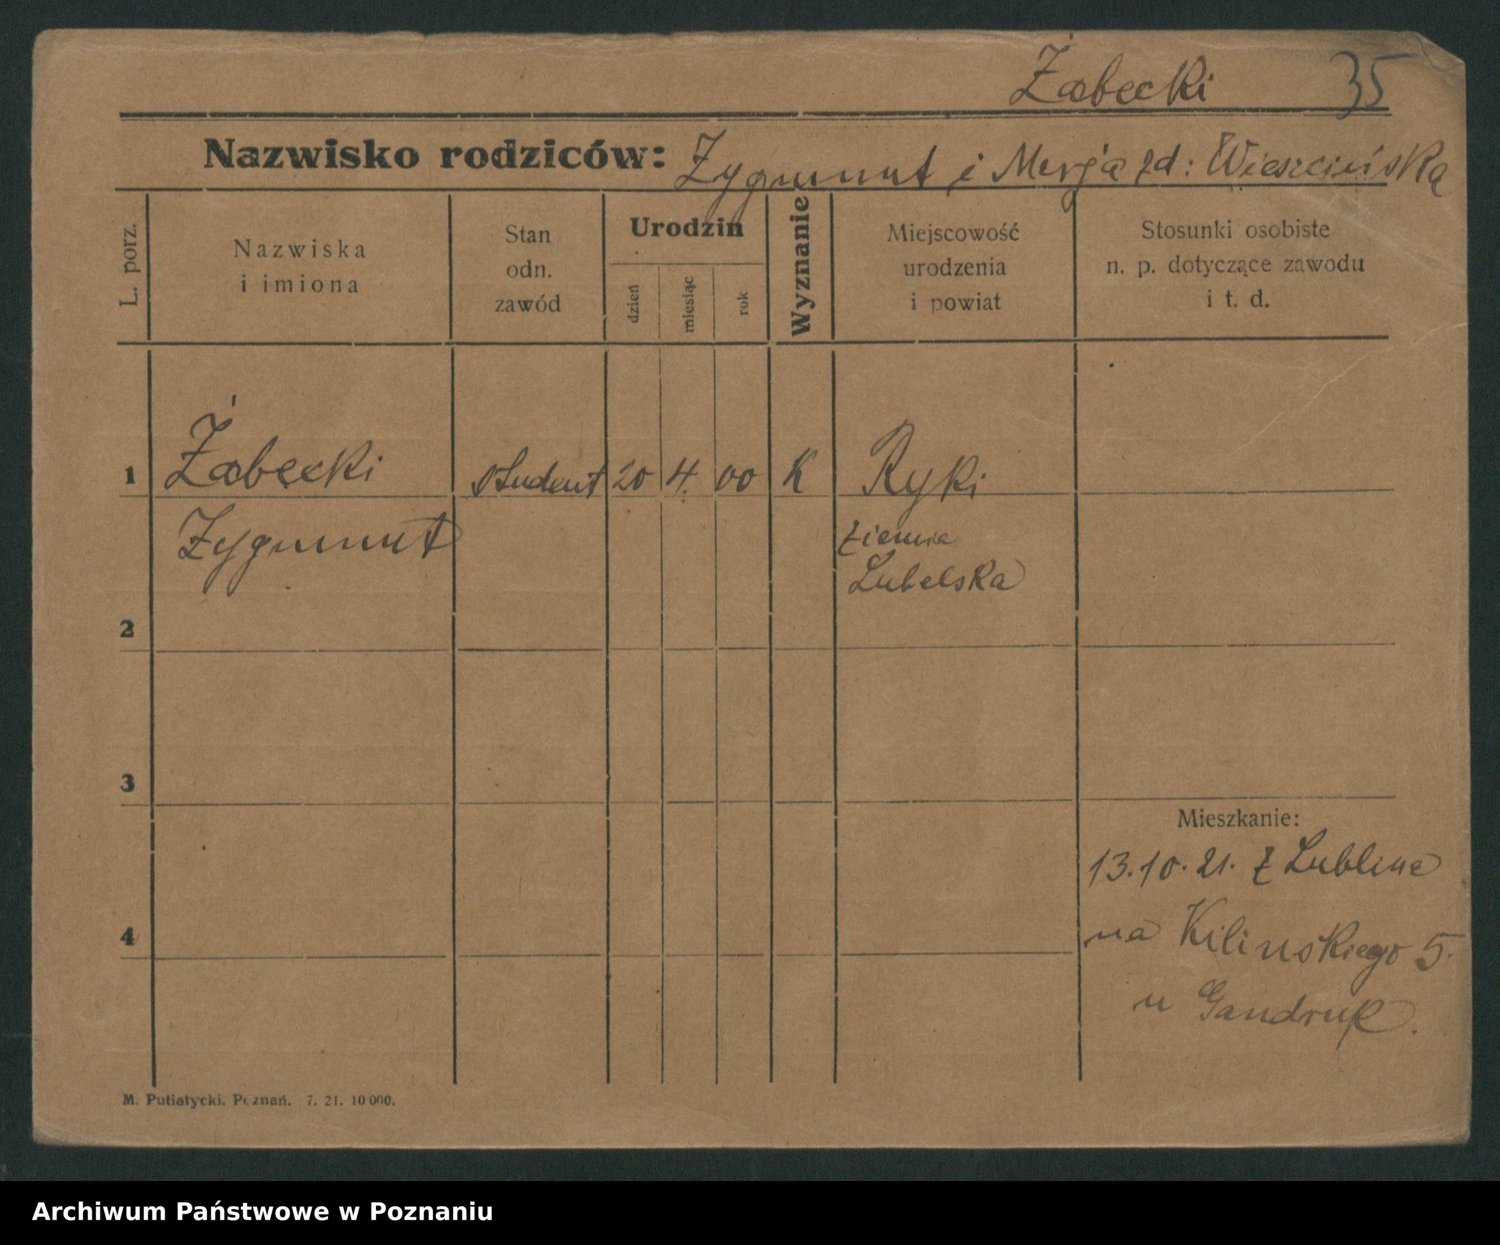 Żabecki 35
Nazwisko rodziców: Zygmunt i Marja zd:
L. porz.
Nazwiska
i imiona
Stan
odn.
zawód
Urodzin
dzień
miesiąc
rok
Wyznanie
Miejscowość
urodzenia
i powiat
Stosunki osobiste
n. p. dotyczące zawodu
i t. d.
1 Żabecki student 20 4. 00 K Ryki
Zygmunt ziemia
Lubelska
2
3
Mieszkanie:
13.10.21. z Lublina
4 na Kilinskiego 5.
u
M. Putiatycki. Poznań. 7. 21. 10 000.
Archiwum Państwowe w Poznaniu